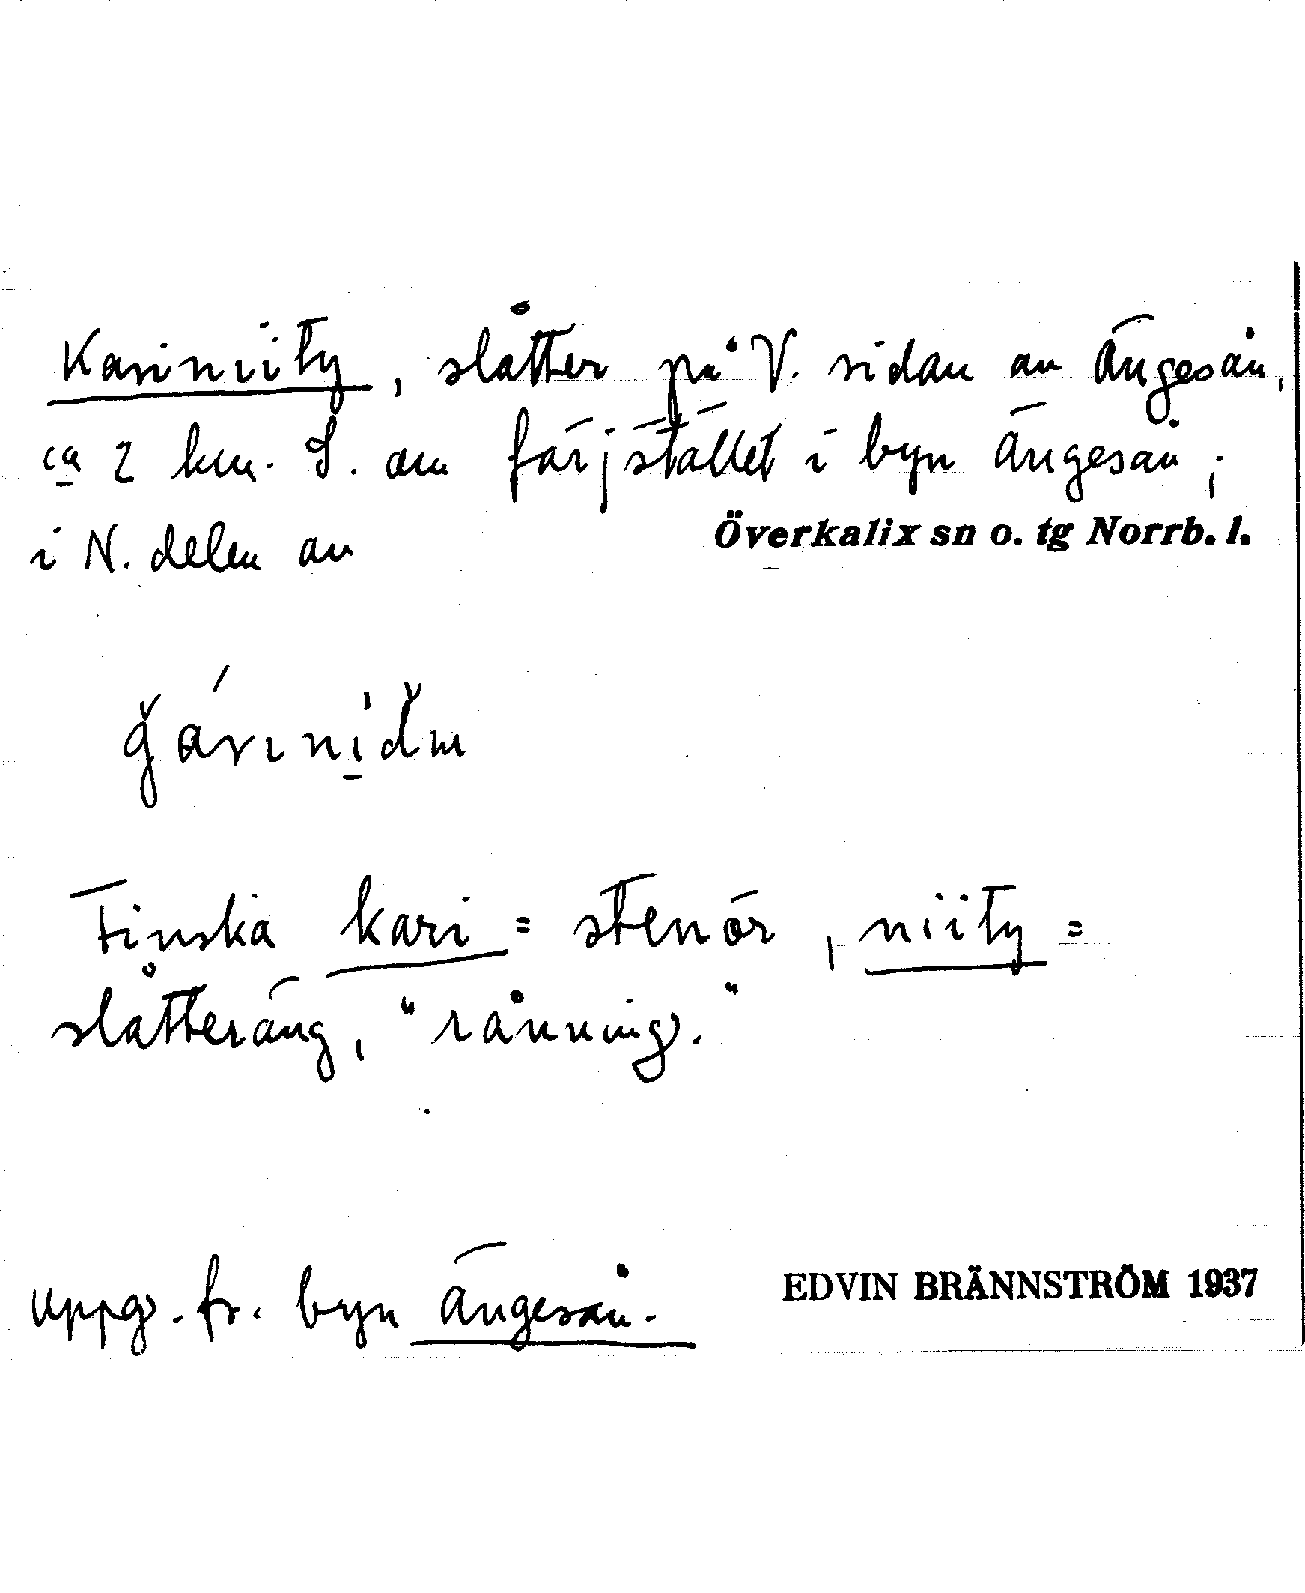 Kariniity, slåtter på V. sidan av Ängesån,
ca 2 km. S. om färjstället i byn Ängesån;
i N. delen av Överkalix sn o. tg Norrb. l.
Finska kari = stenör, niity =
slåtteräng, "rånning."
uppg. fr. byn Ängesån. EDVIN BRÄNNSTRÖM 1937